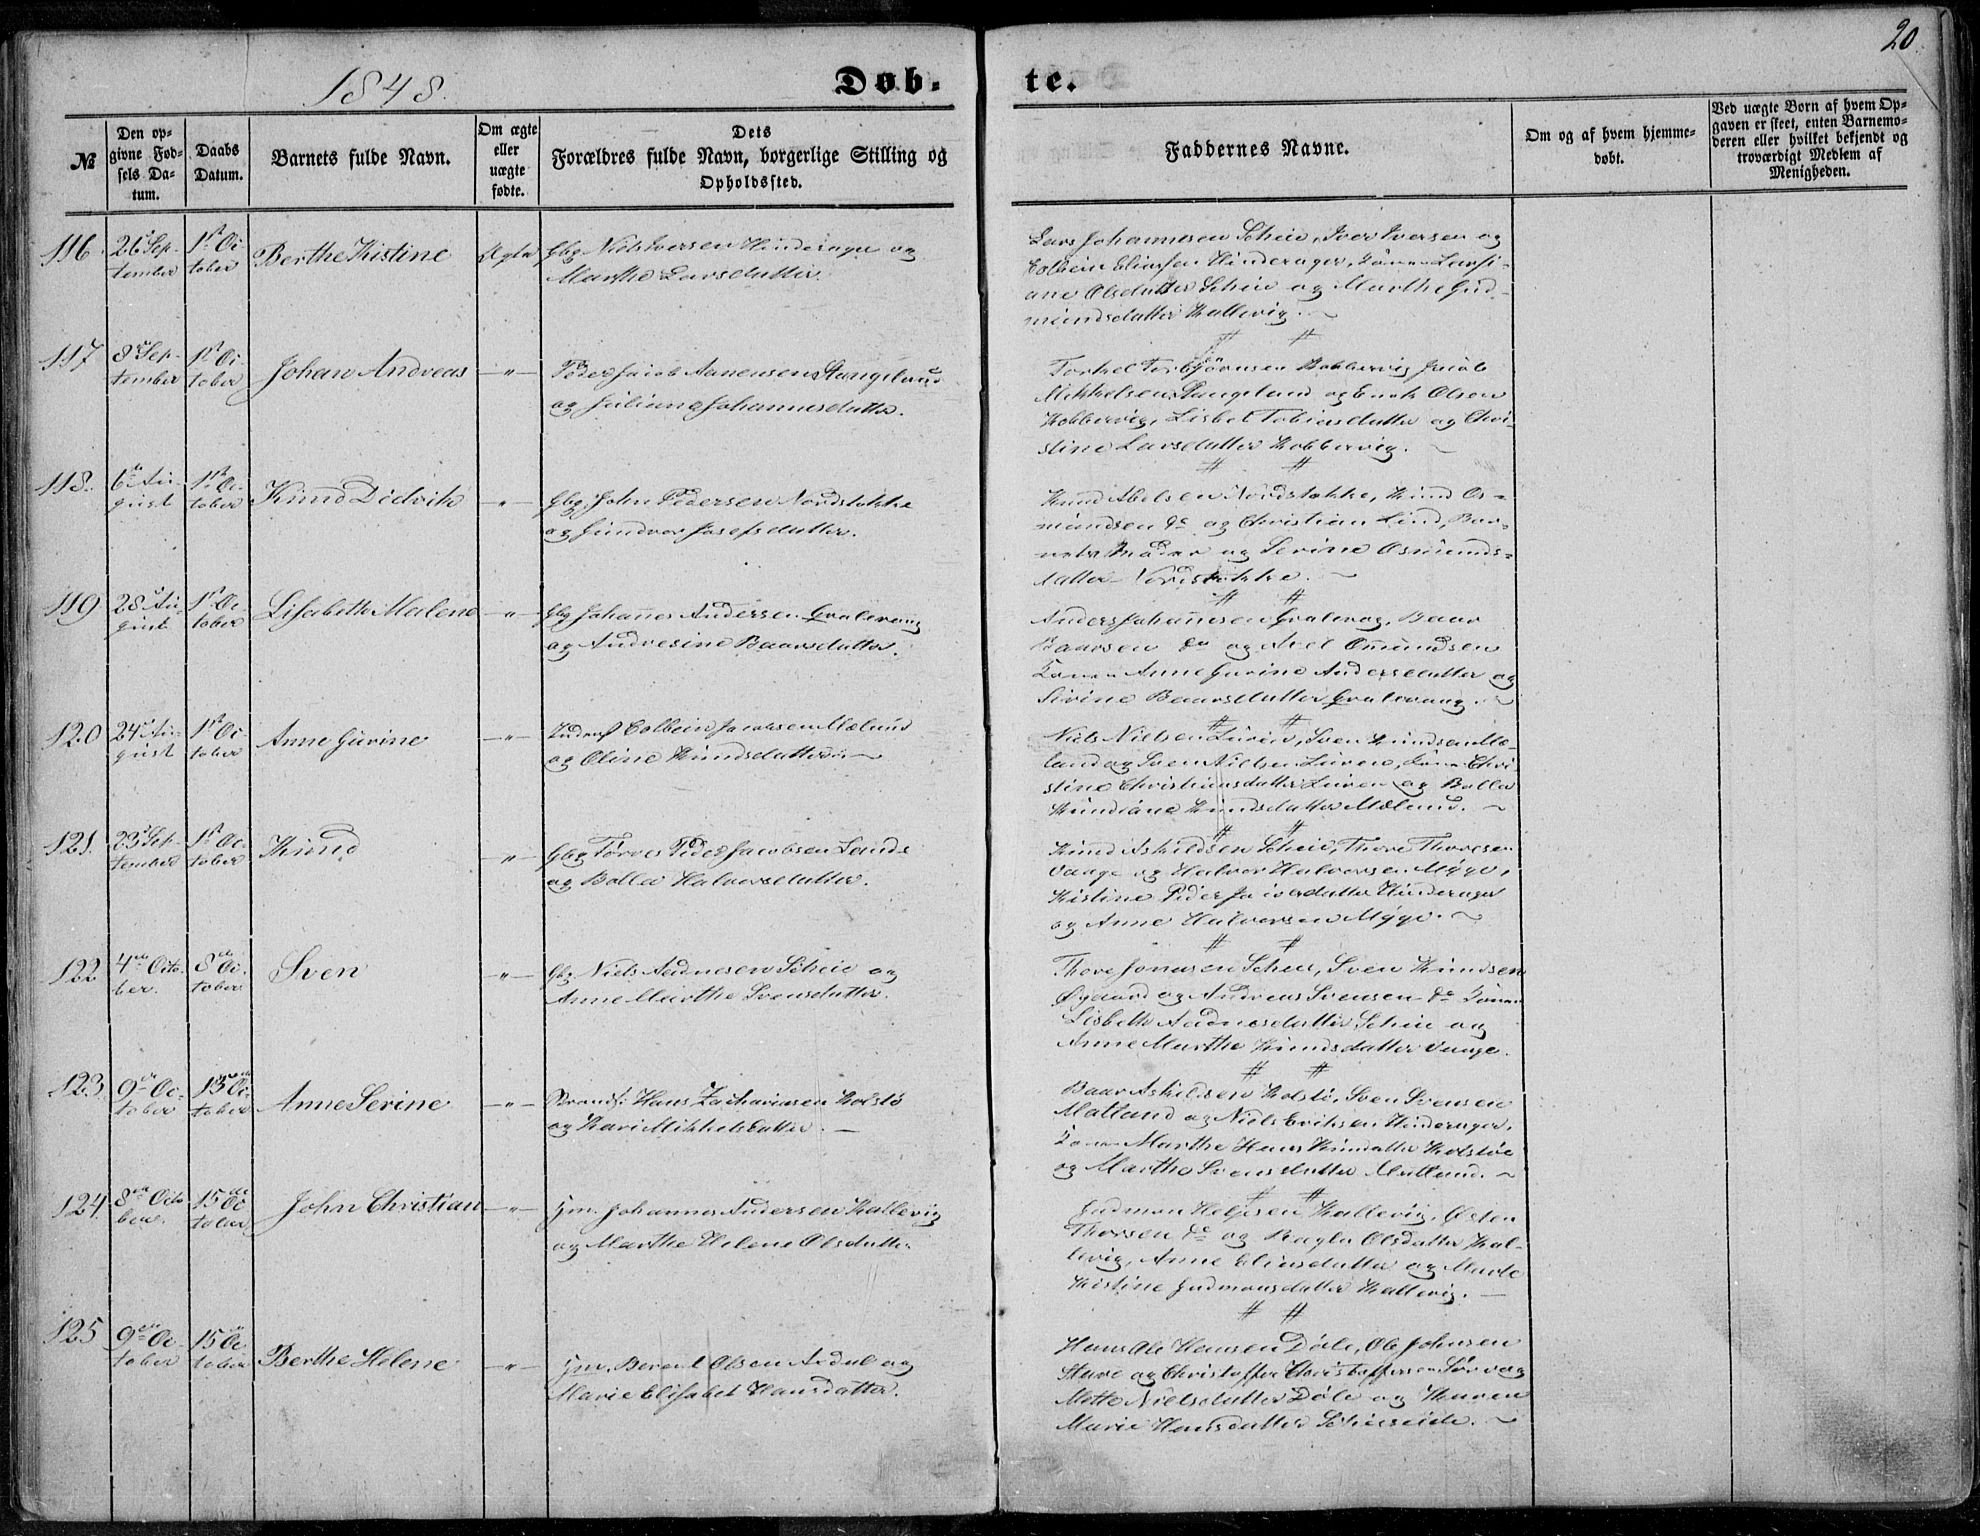 20
1848.
Døb-
te.
№
Den op-
givne Fød-
sels Da-
tum.
Daabs
Datum.
Barnets fulde Navn.
Om ægte
eller
uægte
fødte.
Dets
Forældres fulde Navn, borgerlige Stilling og
Opholdssted.
Faddernes Navne.
Om og af hvem hjemme-
døbt.
Ved uægte Børn af hvem Op-
gaven er skeet, enten Barnemo-
deren eller hvilket bekjendt og
troværdigt Medlem af
Menigheden.
116.
26 Sep-
tember
1st Oc
tober
Berthe Kistine
Ægte
Gbg Niels Iversen Hinderager og
Marthe Larsdatter.
Lars Johannesen Scheie, Iver Iversen og
Colbein Eliassen Hinderager,
ane Olsdatter Scheie og Marthe Gud-
mundsdatter Kallevig.
117
8 Sep-
tember
1st Oc
tober
Johan Andreas
-"-
Peder Jacob Aanensen Stangeland
og Juliane Johannesdatter.
Torkel Torbjörnsen Kobbervig Jacob
Mikkelsen Stangeland og Enok Olsen
Kobbervig, Lisbet Tobiasdatter og Chri-
stine Larsdatter Kobbervig.
118.
6te Au-
gust
1st Oc-
tober
Knud Didrik
-"-
Gbg John Pedersen Nordstokke
og Gundvor Josefsdatter.
Knud Abelsen Nordstokke, Knud Os-
mundsen do og Christian Lind, Bar-
nets Moder og Serine Osmunds-
datter Nordstokke.
119
28 Au
gust
1st Oc
tober
Lisabeth Malene
-"-
Gbg Johannes Andersen Qvalevaag
og Andresine Baarsdatter.
Anders Johannesen Qvalevag, Baar
Baarsen do og Axel Omundsen
Konen Anne Gurine Andersdatter og
Sirine Baarsdatter Qvalevaag.
120
24 Au-
gust
1st Oc
tober
Anne Gurine
-"-
Colbein Jacobsen Mæland
og Oline Knudsdatter.
Niels Nielsen Lireen, Sven Knudsen Mæ-
land og Sven Nielsen Liren, Kone Chri
stine Christiansdatter Liren og Bolla
Knudiane Knudsdatter Mæland.
121.
23 Sep-
tember
1st Oc
tober
Knud
-"-
Gbg Tørres Peder Jacobsen Sande
og Bolla Halvorsdatter.
Knud Askildsen Scheie, Thore Thoresen
Vaage og Halvor Halvorsen Myge,
Kistine Peder Hinderager
og Anne Halvorsen Myge.
122
4de Octo-
ber.
8de Oc
tober
Sven
-"-
Gbg Niels Aadnesen Scheie og
Anne Marthe Svensdatter.
Thore Jonasen Scheie, Sven Knudsen
Øygaard og Andreas Svensen do Konen
Lisbeth Aadnesdatter Scheie og
Anne Marthe Knudsdatter Vaage.
123.
9de Oc-
tober
15 Oc
tober
Anne Serine
-"-
Strands: Hans Zachariasen Kolstö
og Kari Mikkelsdatter.
Baar Askildsen Kolstö, Sven Svensen
Matland og Niels Eriksen Hinderager,
Konen Marthe Hans Kolstöe
og Marthe Svensdatter Matland.
124.
8de Octo
ber.
15de Oc
tober
John Christian
-"-
Hm. Johannes Andersen Kallevig
og Marthe Helene Olsdatter
Gudmon Helgesen Kallevig, Østen
Thorsen do og Ragla Olsdatter Kal-
levig, Anne Eliasdatter og Marte
Kistine Gudmonsdatter Kallevig.
125
9de Oc
tober
15 Oc
tober
Berthe Helene
-"-
Hm. Berent Olsen Ardal og
Marie Elisabet Hansdatter.
Hans Ole Hansen Døle, Ole Johnsen
Stave og Christoffer Christoffersen Sörvaag
Mette Nielsdatter Döle og Karen
Marie Hansdatter Scheiseide.